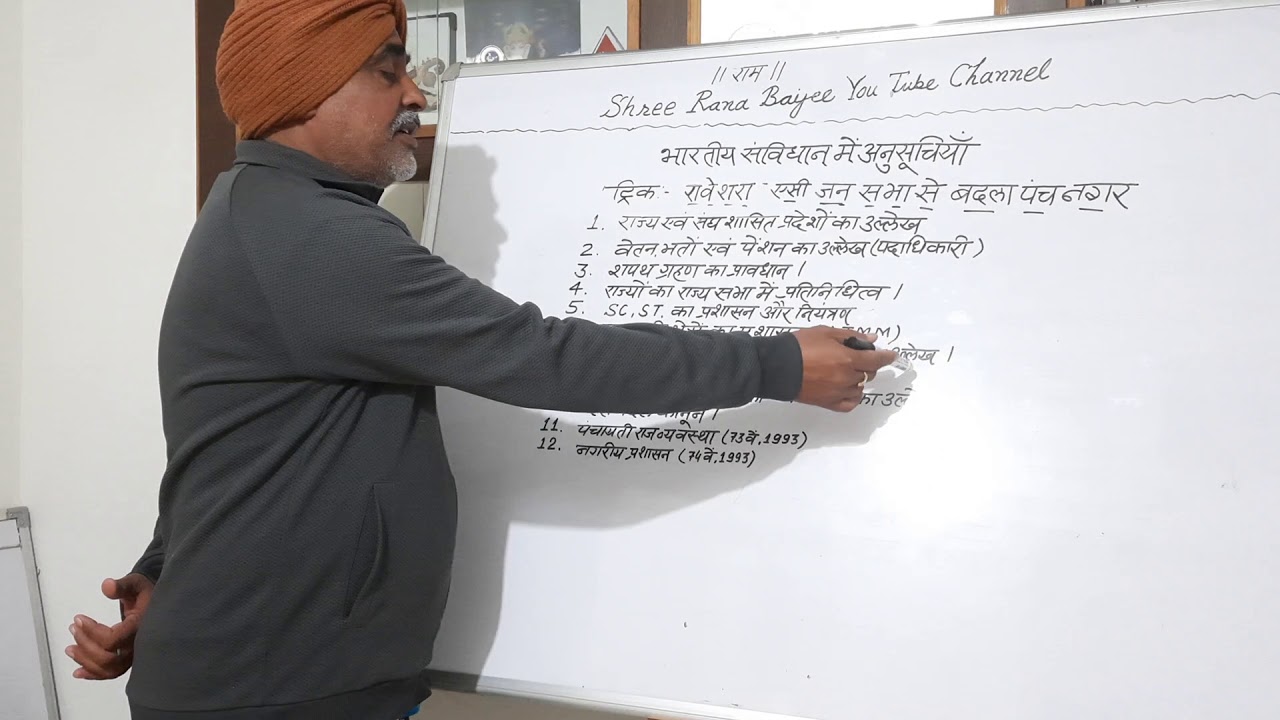 || राम ||
Shree Rana Baijee You Tube Channel
भारतीय संविधान में अनुसूचियाँ
ट्रिक :- रावेशरा एसी जन सभा से बदला पंच नगर
1. राज्य एवं संघ शासित प्रदेशों का उल्लेख
2. वेतन, भतों एवं पेंशन का उल्लेख (पदाधिकारी)
3. शपथ ग्रहण का प्रावधान ।
4. राज्यों का राज्य सभा में प्रतिनिधित्व ।
5. SC, ST, का प्रशासन और नियंत्रण
का M M)
उल्लेख ।
का
कानून ।
11. पंचायती राज व्यवस्था (73वें, 1993)
12. नगरीय प्रशासन (74वें, 1993)